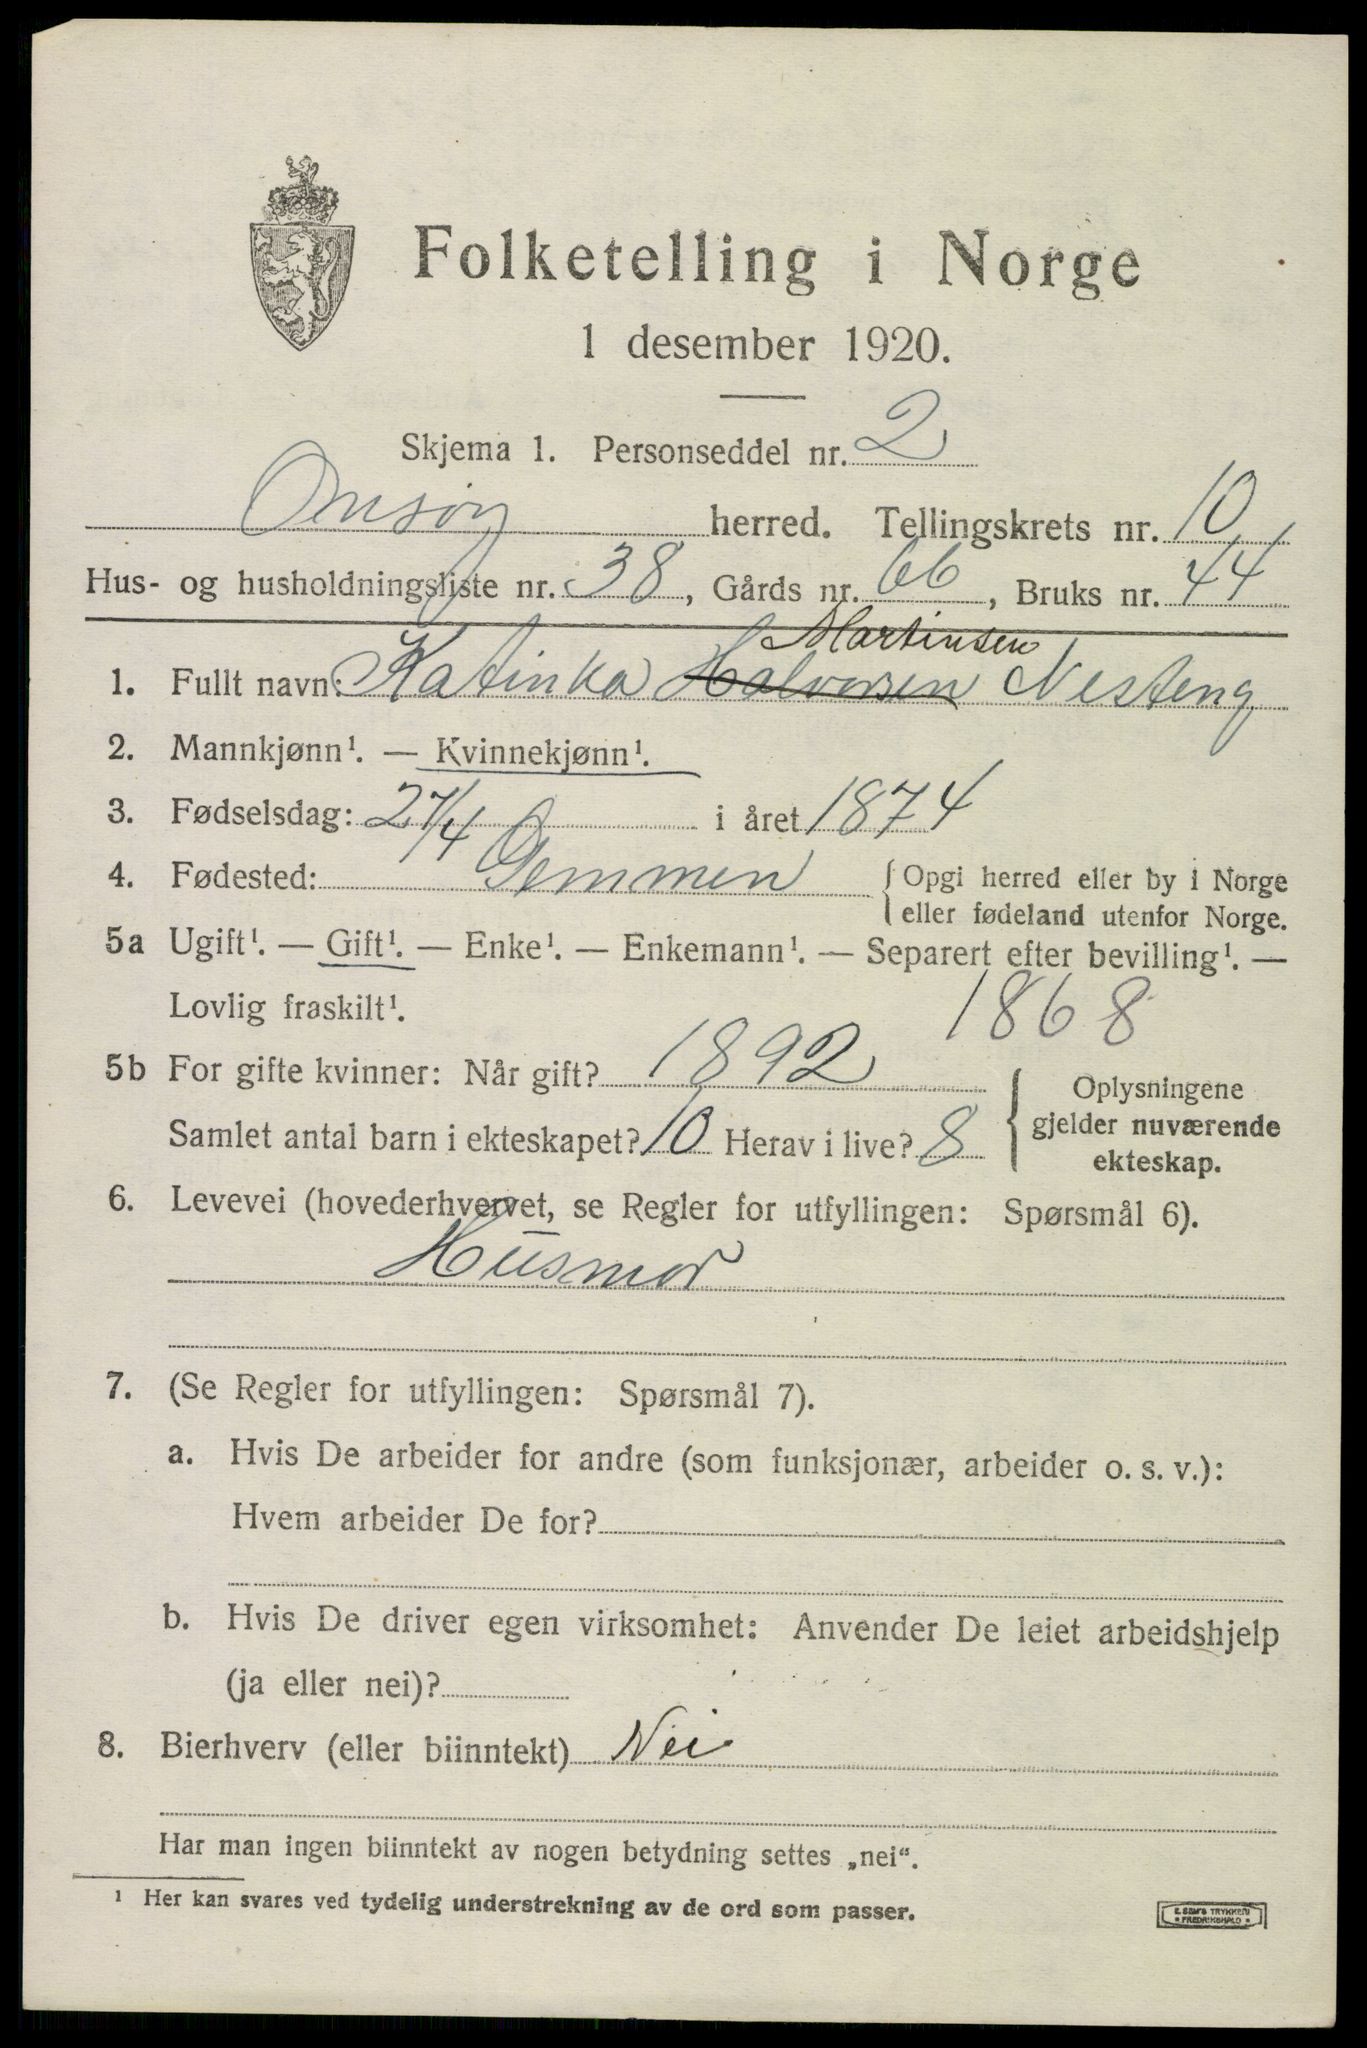 Folketelling i Norge
1 desember 1920.
Skjema 1. Personseddel nr. 2
Onsøy herred. Tellingskrets nr. 10
Hus- og husholdningsliste nr. 38, Gårds nr. 66, Bruks nr. 44
Martinsen
1. Fullt navn: Katinka Halvorsen Nesteng
2. Mannkjønn¹. — Kvinnekjønn¹.
3. Fødselsdag: 27/4 i året 1874
4. Fødested: Glemmen { Opgi herred eller by i Norge
eller fødeland utenfor Norge.
5a Ugift¹. — Gift¹. — Enke¹. — Enkemann¹. — Separert efter bevilling¹. —
Lovlig fraskilt¹. 1868
5b For gifte kvinner: Når gift? 1892
Samlet antal barn i ekteskapet? 10 Herav i live? 8
{ Oplysningene
gjelder nuværende
ekteskap.
6. Levevei (hovederhvervet, se Regler for utfyllingen: Spørsmål 6).
Husmor
7. (Se Regler for utfyllingen: Spørsmål 7).
a. Hvis De arbeider for andre (som funksjonær, arbeider o. s. v.):
Hvem arbeider De for?
b. Hvis De driver egen virksomhet: Anvender De leiet arbeidshjelp
(ja eller nei)?
8. Bierhverv (eller biinntekt) Nei
Har man ingen biinntekt av nogen betydning settes „nei“.
¹ Her kan svares ved tydelig understrekning av de ord som passer.
E. SEM'S TRYKKERI
• FREDRIKSHALD •